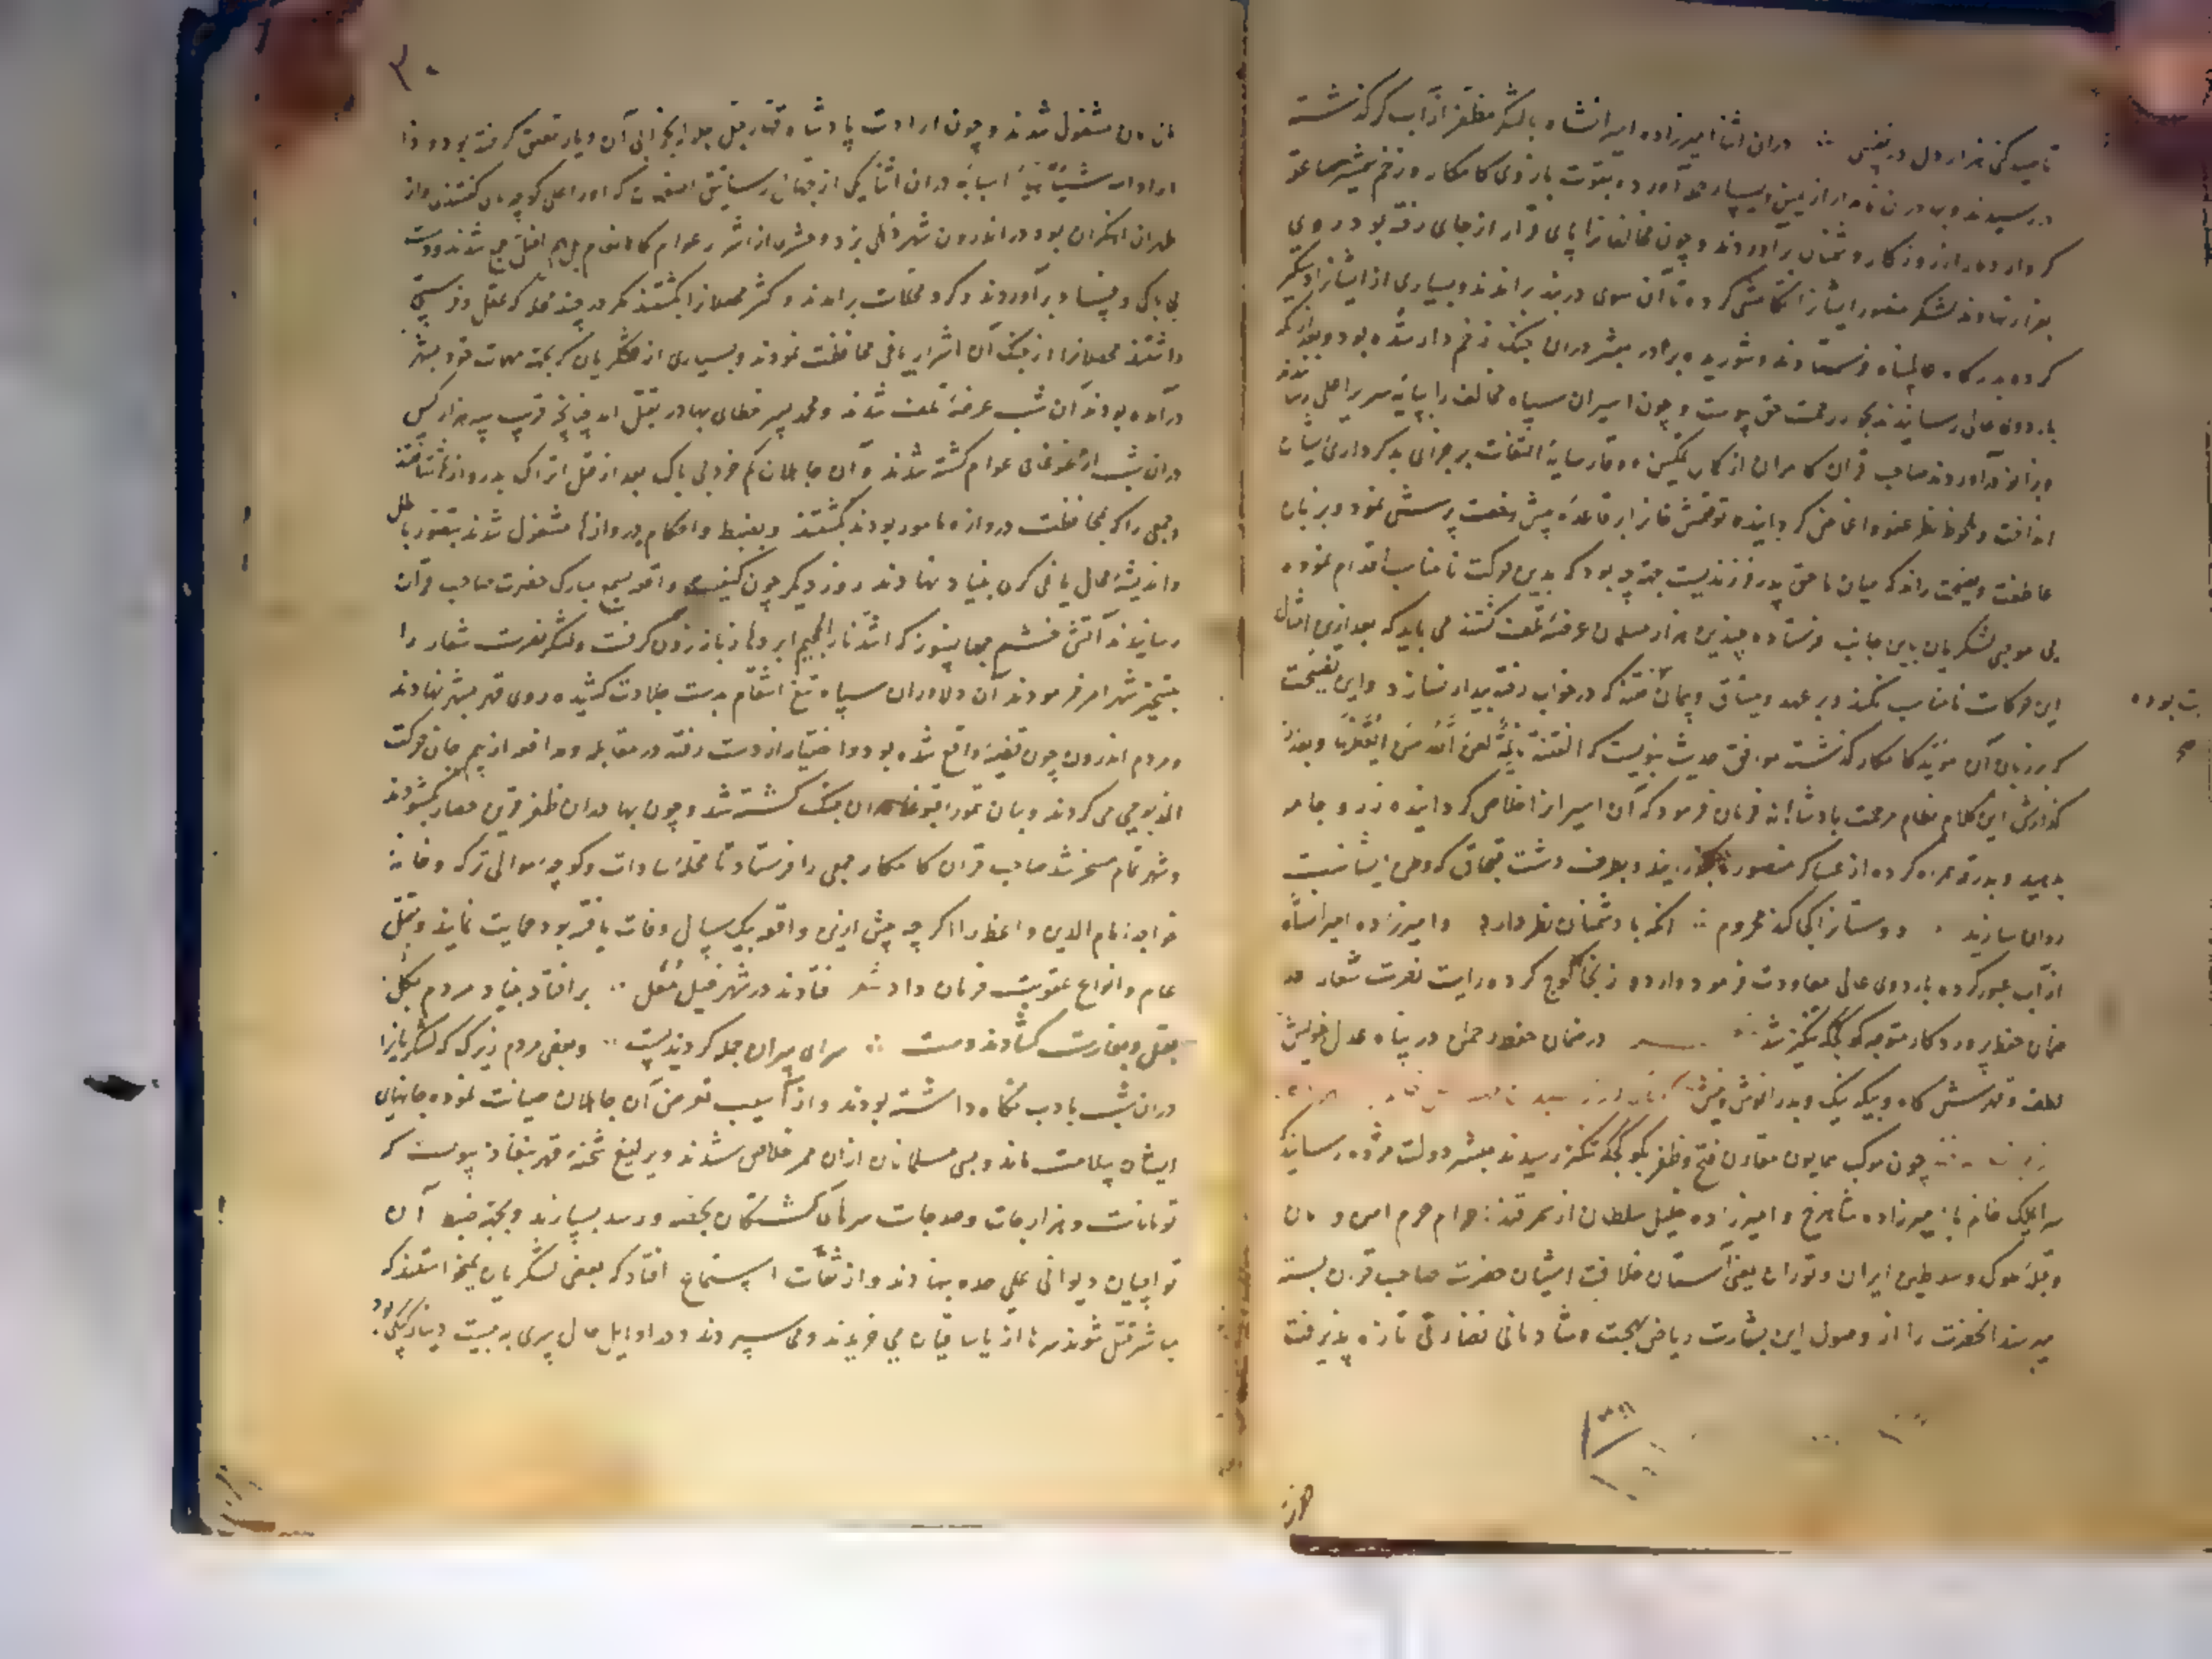 تا صید کنی هزار دل در نفسی ∴ دران اثنا امیرزاده امیرانشاه با لشکر مظفر از آب کر گذشته
در رسیدند و بهادران نامدار از یمین و یسار حمله آورده بقوت بازوی کامکار و زخم شمشیر صاعقه
کردار دمار از روزگار دشمنان برآوردند و چون مخالفانرا پای قرار از جای رفته بود روی
بفرار نهادند لشکر منصور ایشانرا تکامشی کرده تا آن سوی دربند براندند و بسیاری از ایشانرا دستگیر
کرده بدرگاه عالم پناه فرستادند و شوریده برادر مبشر دران جنگ زخم دار شده بود و بعد از آنکه
باردوی عالی رسانیدند بجوار رحمت حق پیوست و چون اسیران سپاه مخالف را بپایه سریر اعلی رسانیدند
و زانو درآوردند صاحب قران کامران از کمال تمکین و وقار سایه التفات بر جزای بدکرداری ایشان
نینداخت و ملحوظ نظر عفو و اغماض گردانیده توقتمش خانرا بر قاعده پیش بشفقت پرسش نمود و بر زبان
عاطفت و نصیحت راند که میان ما حق پدر فرزندیست جهة چه بود که بدین حرکت نامناسب اقدام نموده
بی موجبی لشکریان باین جانب فرستاده چندین هزار مسلمان عرضه تلف گشتند می باید که بعد ازین امثال
این حرکات نامناسب نکند و بر عهد و میثاق و پیمان فتنه که در خواب رفته بیدار نسازد و این نصیحت
که بر زبان آن مؤید کامکار گذشته موافق حدیث نبویست که الفتنة نائمة لعن الله من ایقظها و بعد از
گذارش این کلام نظام مرحمت پادشاهانه فرمان فرمود که آن اسیرانرا خلاص گردانیده زر و جامه
بدهید و بدرقه همراه کرده از عساکر منصوره بگذرانید و بطرف دشت قبچاق که وطن ایشانست
روان سازند ∴ دوستانرا کجا کند محروم ∴ آنکه با دشمنان نظر دارد و امیرزاده امیرانشاه
از آب عبور کرده باردوی عالی معاودت فرمود و اردو از آنجا کوچ کرده رایت نصرت شعار در
ضمان حفظ پروردگار متوجه کوکجه تنکیز شد ∴ در ضمان حفظ رحمن در پناه عدل خویش
لطف و قهرش گاه و بیگه نیک و بد را نوش و نیش
چون موکب همایون مقارن فتح و ظفر بکوکجه تنکز رسیدند مبشر دولت مژده رسانید که
سرای ملک خانم با امیرزاده شاهرخ و امیرزاده خلیل سلطان از سمرقند احرام حرم امن و امان
و قبله ملوک و سلاطین ایران و توران یعنی آستان خلافت آشیان حضرت صاحب قران بسته
میرسند آنحضرت را از وصول این بشارت ریاض بهجت و شادمانی نضارتی تازه پذیرفت
ت بوده
۳۰
مشغول شدند و چون ارادت پادشاه قهار جل جلاله بخرابی آن دیار تعلق گرفته بود و اذا
اراد الله شیئا هیأ اسبابه دران اثنا یکی از جهال رساتیق اصفهان که او را علی کچه پا می گفتند و از
طهران آهنگران بود در اندرون شهر دهلی بزد و حشری از اشرار عوام کالانعام بل هم اضل جمع شدند و دست
بی باکی و فساد برآوردند و گرد محلات برآمدند و اکثر محصلانرا بکشتند مگر در چند محله که عقل و فراستی
داشتند محصلانرا از جنگ آن اشرار یاغی محافظت نمودند و بسیاری از لشکریان که بجهة مهمات خود بشهر
درآمده بودند آن شب عرضه تلف شدند و محمد پسر خطای بهادر بقتل آمد چنانچه قریب سه هزار کس
دران شب از غوغای عوام کشته شدند و آن جاهلان کم خرد بی باک بعد از قتل اتراک بدروازها شتافتند
و جمعی را که بمحافظت دروازه مامور بودند بکشتند و بضبط و احکام دروازها مشغول شدند بتصور باطل
و اندیشه محال یاغی گری بنیاد نهادند روز دیگر چون کیفیت واقعه بسمع مبارک حضرت صاحب قران
رسانیدند آتش خشم جهانسوز که اشد نار الجحیم ابردها زبانه زدن گرفت و لشکر نصرت شعار را
بتسخیر شهر امر فرمودند آن دلاوران سپاه تیغ انتقام بدست جلادت کشیده روی قهر بشهر نهادند
و مردم اندرون چون قضیه واقع شده بود و اختیار از دست رفته در مقابله و مدافعه از بیم جان حرکت
المذبوحی می کردند و بیان تمور اقبوغا دران جنگ کشته شد و چون بهادران ظفر قرین حصار بگشودند
و شهر تمام مسخر شد صاحب قران کامکار جمعی را فرستاد تا محله سادات و کوچه موالی ترکه و خانه
خواجه امام الدین واعظ را اگر چه پیش ازین واقعه بیک سال وفات یافته بود حمایت نمایند و بقتل
عام و انواع عقوبت فرمان داد شعر فتادند در شهر خیل مغل ∴ برافتاد بنیاد مردم بکل
بقتل و بغارت گشادند دست ∴ سرای سران جمله کردند پست ∴ و بعضی مردم زیرک که لشکریانرا
دران شب بادب نگاه داشته بودند و از آسیب تعرض آن جاهلان صیانت نموده خانهای
ایشان بسلامت ماند و بسی مسلمانان ازان ممر خلاص شدند و یرلیغ شحنه قهر بنفاذ پیوست که
تومانات و هزارجات و صدجات سرهای کشتگان بحصه و رسد بسپارند و بجهة ضبط آن
تواچیان دیوانی علی حده بنهادند و از ثقات استماع افتاد که بعضی لشکریان نمیخواستند که
مباشر قتل شوند سرها از یاساقیان می خریدند و می سپردند و در اوایل حال سری به بیست دینار کپکی بود